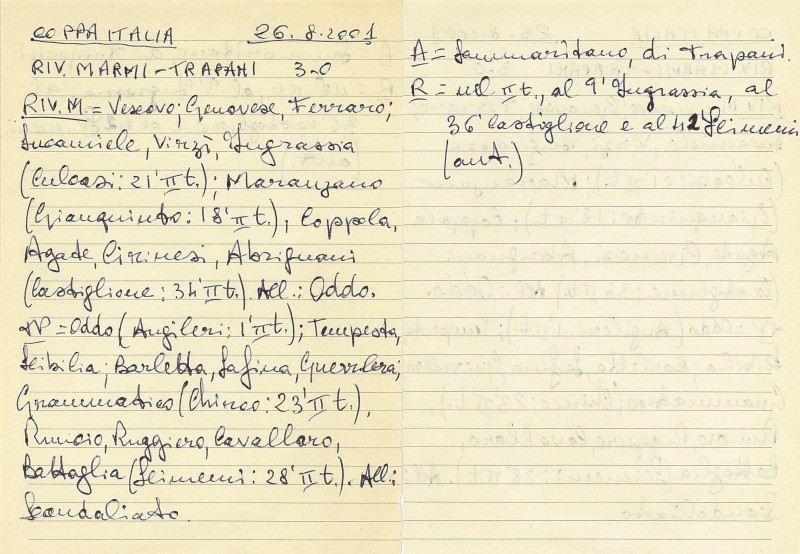 COPPA ITALIA 26.8.2001
RIV. MARMI-TRAPANI 3-0
RIV.M.= Vescovo; Genovese, Ferraro;
Lucamiele, Virzì, Ingrassia
(Culcasi: 21' II t.); Maranzano
(Gianquinto: 18' II t.), Coppola,
Agate, Cirinesi, Abrignani
(Castiglione: 34' II t.). All.: Oddo.
TP = Oddo (Angileri: 1' II t.); Tempesta,
Scibilia; Barletta, Safina, Guerrera;
Grammatico (Chirco: 23' II t.),
Runcio, Ruggiero, Cavallaro,
Battaglia (Scimemi: 28' II t.). All.:
Scandaliato.
A = Sammaritano, di Trapani.
R = nel II t., al 9' Ingrassia, al
36' Castiglione e al 42' Scimemi
(aut.)